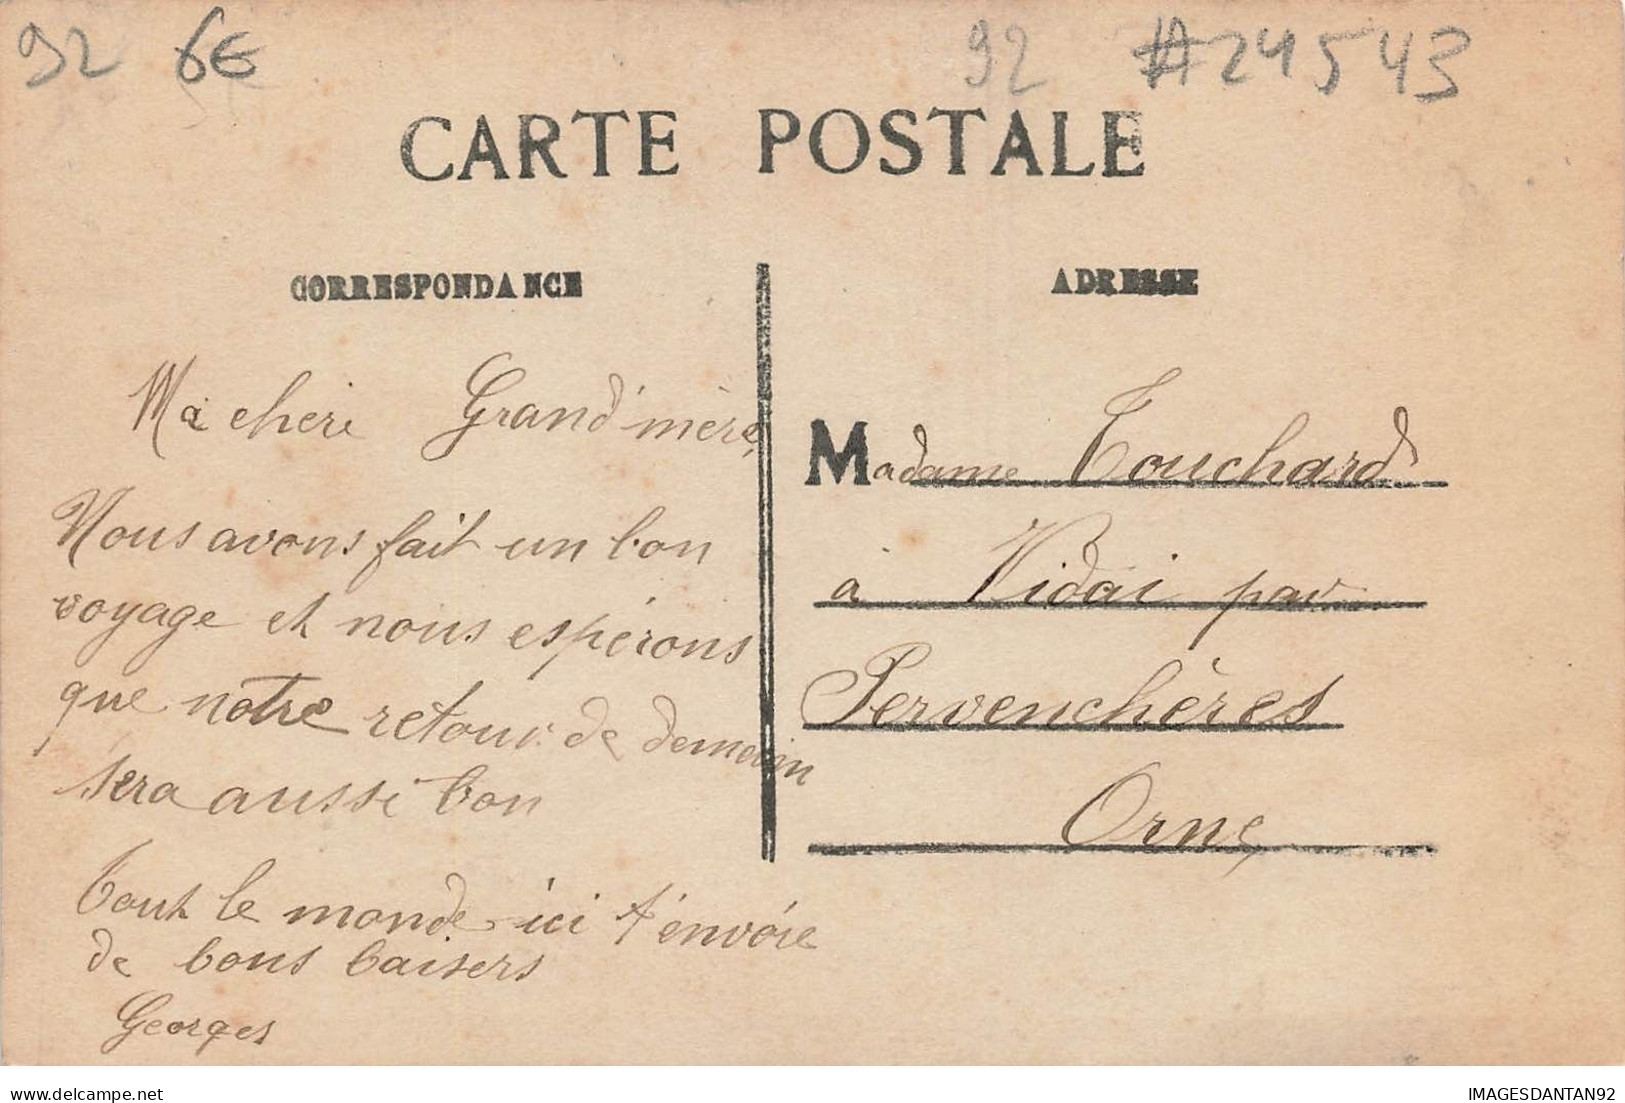 92 6€ 92 #24543
CARTE POSTALE
CORRESPONDANCE
Ma cheri Grand'mère,
Nous avons fait un bon
voyage et nous espérons
que notre retour de demain
sera aussi bon
Tout le monde ici t'envoie
de bons baisers
Georges
ADRESSE
Madame Touchard
à Vidai par
Pervenchères
Orne
IMAGESDANTAN92